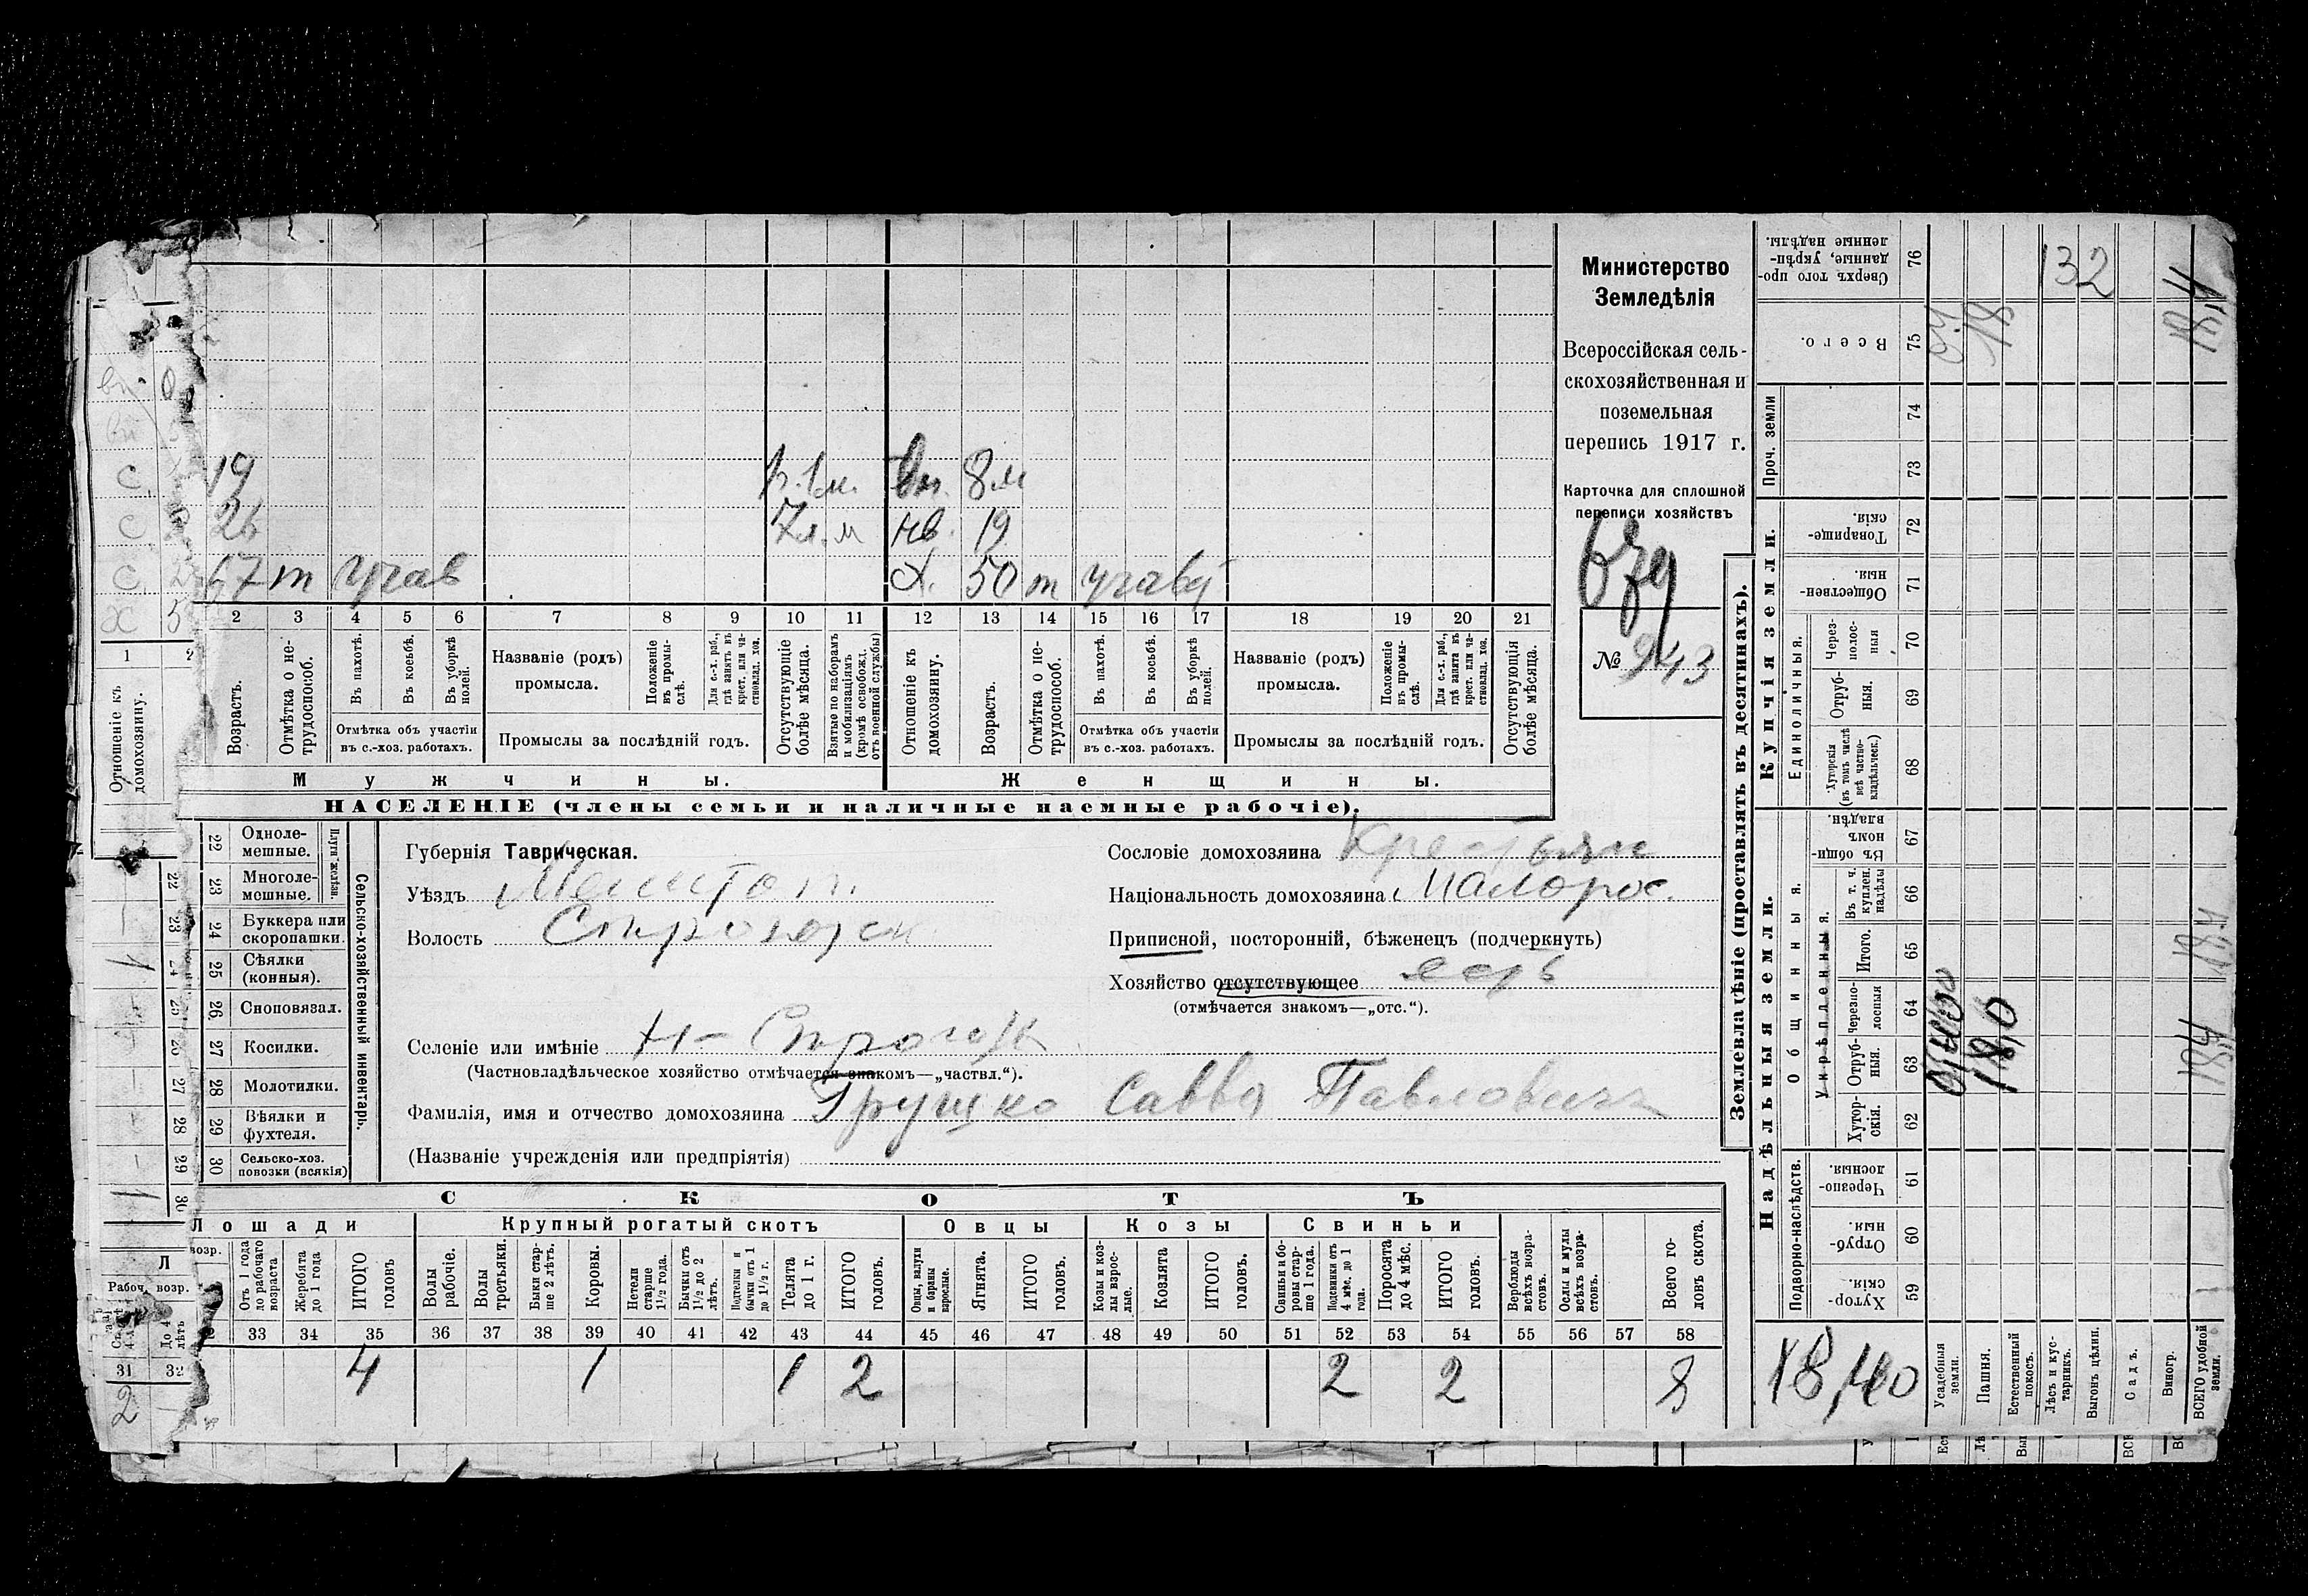 19 р. 1 м. вн. 8 м
26 7 л. м нв. 19
67 т учав х. 50 т учавс
2 3 4 5 6 7 8 9 10 11 12 13 14 15 16 17 18 19 20 21
Возрастъ.
Отмѣтка о не-
трудоспособ.
Въ пахотѣ.
Въ косьбѣ.
Въ уборкѣ
полей.
Отмѣтка объ участіи
въ с.-хоз. работахъ.
Названіе (родъ)
промысла.
Положеніе
въ промы-
слѣ.
Для с.-х. раб.,
гдѣ занятъ въ
крест. или ча-
стновлад. хоз.
Промыслы за послѣдній годъ.
Отсутствующіе
болѣе мѣсяца.
Взятые по наборамъ
и мобилизаціямъ
(кромѣ освобожд.
отъ военной службы)
Отношеніе къ
домохозяину.
Возрастъ.
Отмѣтка о не-
трудоспособ.
Въ пахотѣ.
Въ косьбѣ.
Въ уборкѣ
полей.
Отмѣтка объ участіи
въ с.-хоз. работахъ.
Названіе (родъ)
промысла.
Положеніе
въ промы-
слѣ.
Для с.-х. раб.,
гдѣ занята въ
крест. или ча-
стновлад. хоз.
Промыслы за послѣдній годъ.
Отсутствующія
болѣе мѣсяца.
Мужчины.
Женщины.
НАСЕЛЕНІЕ (члены семьи и наличные наемные рабочіе).
1 2
Отношеніе къ
домохозяину.
Министерство
Земледѣлія
Всероссійская сель-
скохозяйственная и
поземельная
перепись 1917 г.
Карточка для сплошной
переписи хозяйствъ
№ 943
22 Одноле-
мешные.
23 Многоле-
мешные.
Плуги желѣзн.
24 Буккера или
скоропашки.
25 Сѣялки
(конныя).
26 Сноповязал.
27 Косилки.
28 Молотилки.
29 Вѣялки и
фухтеля.
30 Сельско-хоз.
повозки (всякія)
Сельско-хозяйственный инвентарь.
Губернія Таврическая.
Уѣздъ Мелитоп.
Волость Строгорск
Селеніе или имѣніе Н-Строгов
(Частновладѣльческое хозяйство отмѣчается знакомъ—„частвл.“).
Фамилія, имя и отчество домохозяина Грушко Савва Павловичъ
(Названіе учрежденія или предпріятія)
Сословіе домохозяина Крестьян
Національность домохозяина Малорос.
Приписной, посторонній, бѣженецъ (подчеркнуть)
Хозяйство отсутствующее есть
(отмѣчается знакомъ—„отс.“).
СКОТЪ
Лошади Крупный рогатый скотъ Овцы Козы Свиньи
Отъ 1 года
до рабочаго
возраста
Жеребята
до 1 года
ИТОГО
головъ
Волы
рабочіе.
Волы
третьяки.
Быки стар-
ше 2 лѣтъ.
Коровы.
Нетели
старше
1½ года.
Бычки отъ
1½ до 2
лѣтъ.
Подтелки и
бычки отъ 1
до 1½ г.
Телята
до 1 г.
ИТОГО
головъ.
Овцы, валухи
и бараны
взрослые.
Ягнята.
ИТОГО
головъ.
Козы и коз-
лы взрос-
лые.
Козлята
ИТОГО
головъ.
Свиньи и бо-
ровы стар-
ше 1 года.
Подсвинки отъ
4 мѣс. до 1
года.
Поросята
до 4 мѣс.
ИТОГО
головъ.
Верблюды
всѣхъ возра-
стовъ.
Ослы и мулы
всѣхъ возра-
стовъ.
Всего го-
ловъ скота.
Рабоч. возр.
До 4
лѣтъ
31 32 33 34 35 36 37 38 39 40 41 42 43 44 45 46 47 48 49 50 51 52 53 54 55 56 57 58
2 4 1 1 2 2 2 8
Землевладѣніе (проставлять въ десятинахъ).
Надѣльныя земли.
Купчія земли.
Подворно-наслѣдств.
Общинныя.
Укрѣпленныя.
Единоличныя.
Проч. земли
59 Хутор-
скія.
60 Отруб-
ныя.
61 Черезпо-
лосныя.
62 Хутор-
скія.
63 Отруб-
ныя.
64 Черезпо-
лосныя
65 Итого.
66 Въ т. ч.
куплен.
надѣлы
67 Въ общи-
номъ
владѣн.
68 Хуторскія
(въ томъ числѣ
всѣ частно-
владѣльческ.)
69 Отруб-
ныя.
70 Через-
полос-
ныя
71 Обществен-
ныя.
72 Товарище-
скія.
73 74
75 Всего.
76 Сверхъ того про-
данные, укрѣп-
ленные надѣлы.
18,40
Усадебныя
земли.
Пашня.
Естественный
покосъ.
Лѣсъ и кус-
тарникъ.
Выгонъ цѣлин.
Садъ.
Виногр.
ВСЕГО удобной
земли.
0,40
18,0
18,4
18
132
18,4